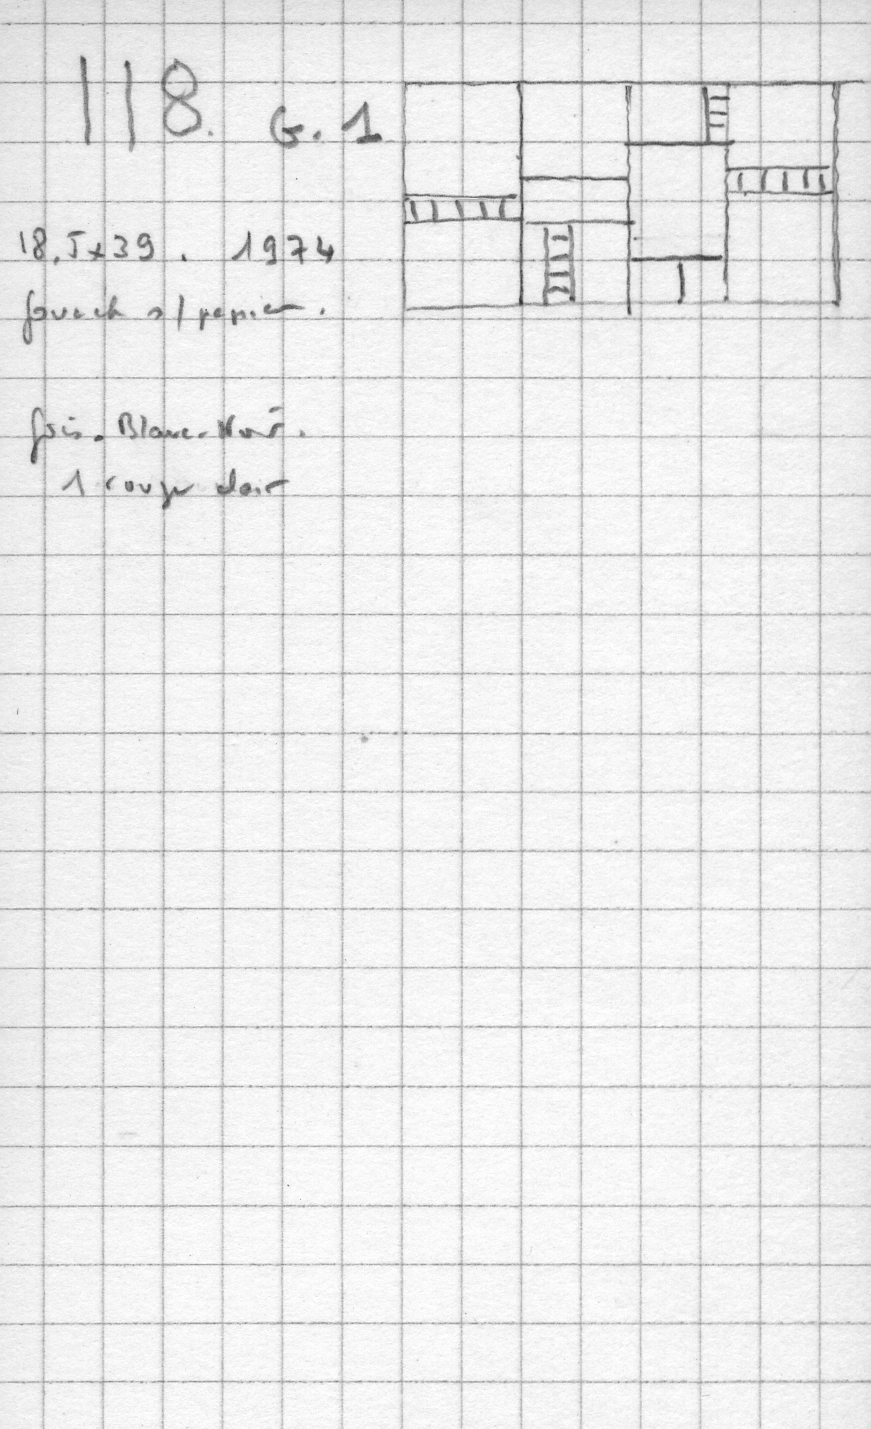 118. G. 1
18.5x39. 1974
gouach s/papier.
gris. Blanc. Noir.
1 rouge clair